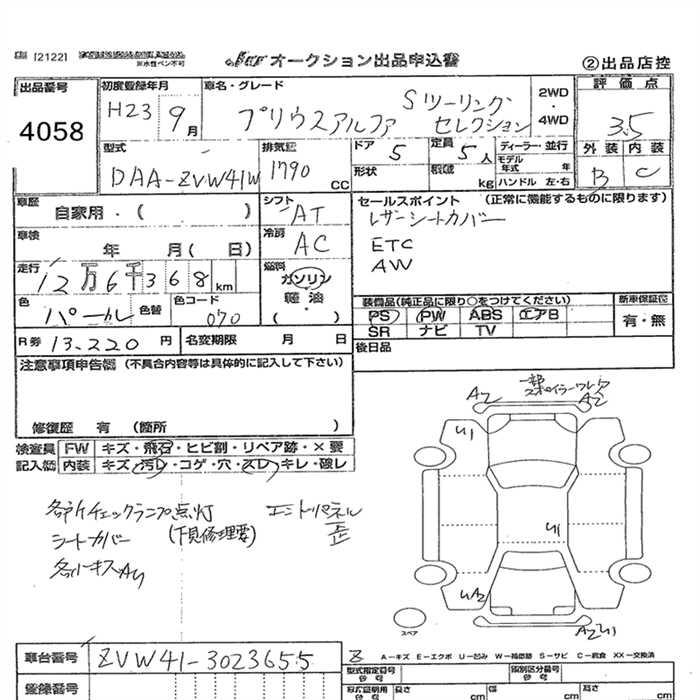 [2122]
※水性ペン不可
オークション出品申込書
②出品店控
出品番号
4058
初度登録年月
H23 9月
車名・グレード
プリウスアルファ Sツーリングセレクション
2WD・4WD
評価点
3.5
外装 内装
B C
型式
DAA-ZVW41W
排気量
1790 CC
ドア 5
形状
定員 5人
積載 kg
ディーラー・並行
モデル年式 年
ハンドル 左・右
車歴
自家用・( )
車検
年 月( 日)
シフト AT
冷房 AC
セールスポイント (正常に機能するものに限ります)
レザーシートカバー
ETC
AW
走行 12万6千368km
燃料 ガソリン
軽油
( ・ )
色 パール
色替
色コード 070
装備品(純正品に限り○をつけてください)
PS PW ABS エアB
SR ナビ TV
新車保証書
有・無
R券 13.220 円
名変期限 月 日
後日品
注意事項申告欄(不具合内容等は具体的に記入して下さい)
修復歴 有 (箇所 )
検査員記入欄
FW キズ・飛石・ヒビ割・リペア跡・×要
内装 キズ・汚レ・コゲ・穴・スレ・キレ・破レ
チェックランプ点灯
(下見修理要)
シートカバー
エンドパネル歪
A2
一部スポイラーワレ
A2
U1
U1
UA2
スペア
A-キズ E-エクボ U-凹み W-補修跡 S-サビ C-腐食 XX-交換済
車台番号
ZVW41-3023655
登録番号
型式指定番号
類別区分番号
長さ cm
幅 cm
高さ cm